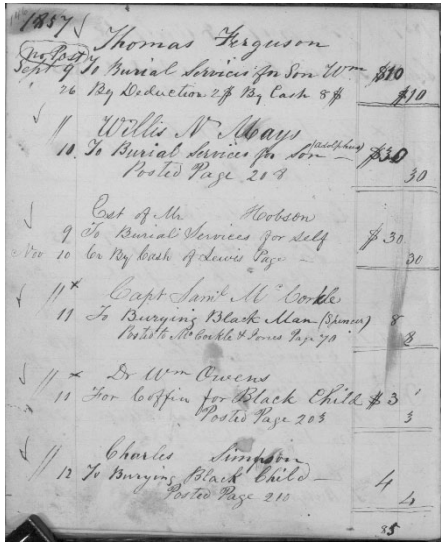 1857
Thomas Ferguson
no Post
Sept 9 To Burial Services for Son Wm $10
26 By Deduction 2$ By Cash 8$ $10
" Willis N Mays
10 To Burial Services for Son (Adolphus) — $30
Posted Page 208 30
Est of Mr Hobson
9 To Burial Services for Self $30
Nov 10 Cr By Cash of Lewis Page 30
" x Capt Saml McCorkle
11 To Burying Black Man (Spencer) 8
Posted to McCorkle & Jones Page 70 8
" x Dr Wm Owens
11 For Coffin for Black Child $3
Posted Page 203 3
" Charles Simpson
12 To Burying Black Child — 4
Posted Page 210 4
85